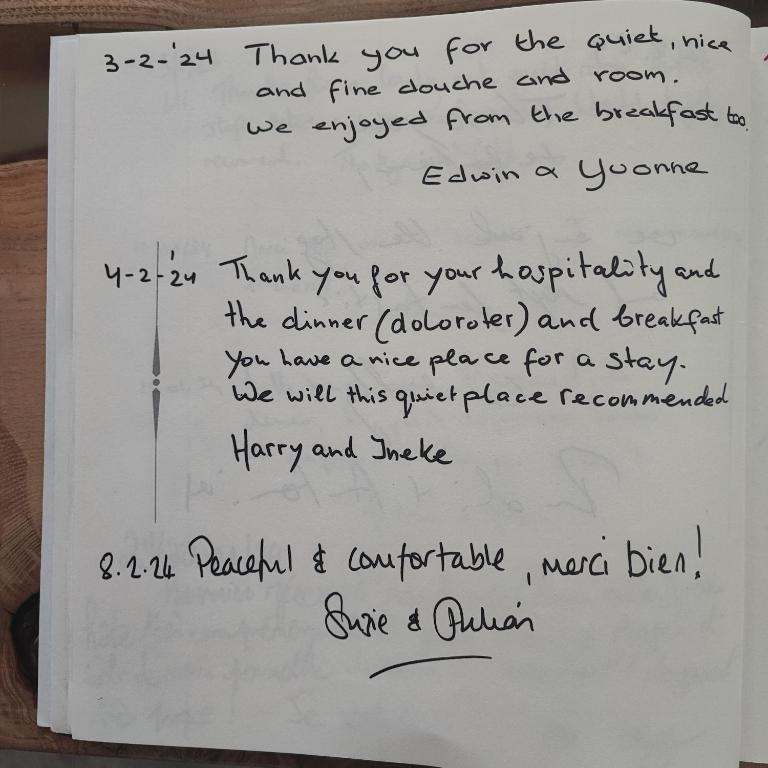 3-2-'24 Thank you for the quiet, nice
and fine douche and room.
We enjoyed from the breakfast too.
Edwin & Yvonne
4-2-'24 Thank you for your hospitality and
the dinner (doloroter) and breakfast
you have a nice place for a stay.
We will this quiet place recommended
Harry and Ineke
8.2.24 Peaceful & comfortable, merci bien!
Suzie &